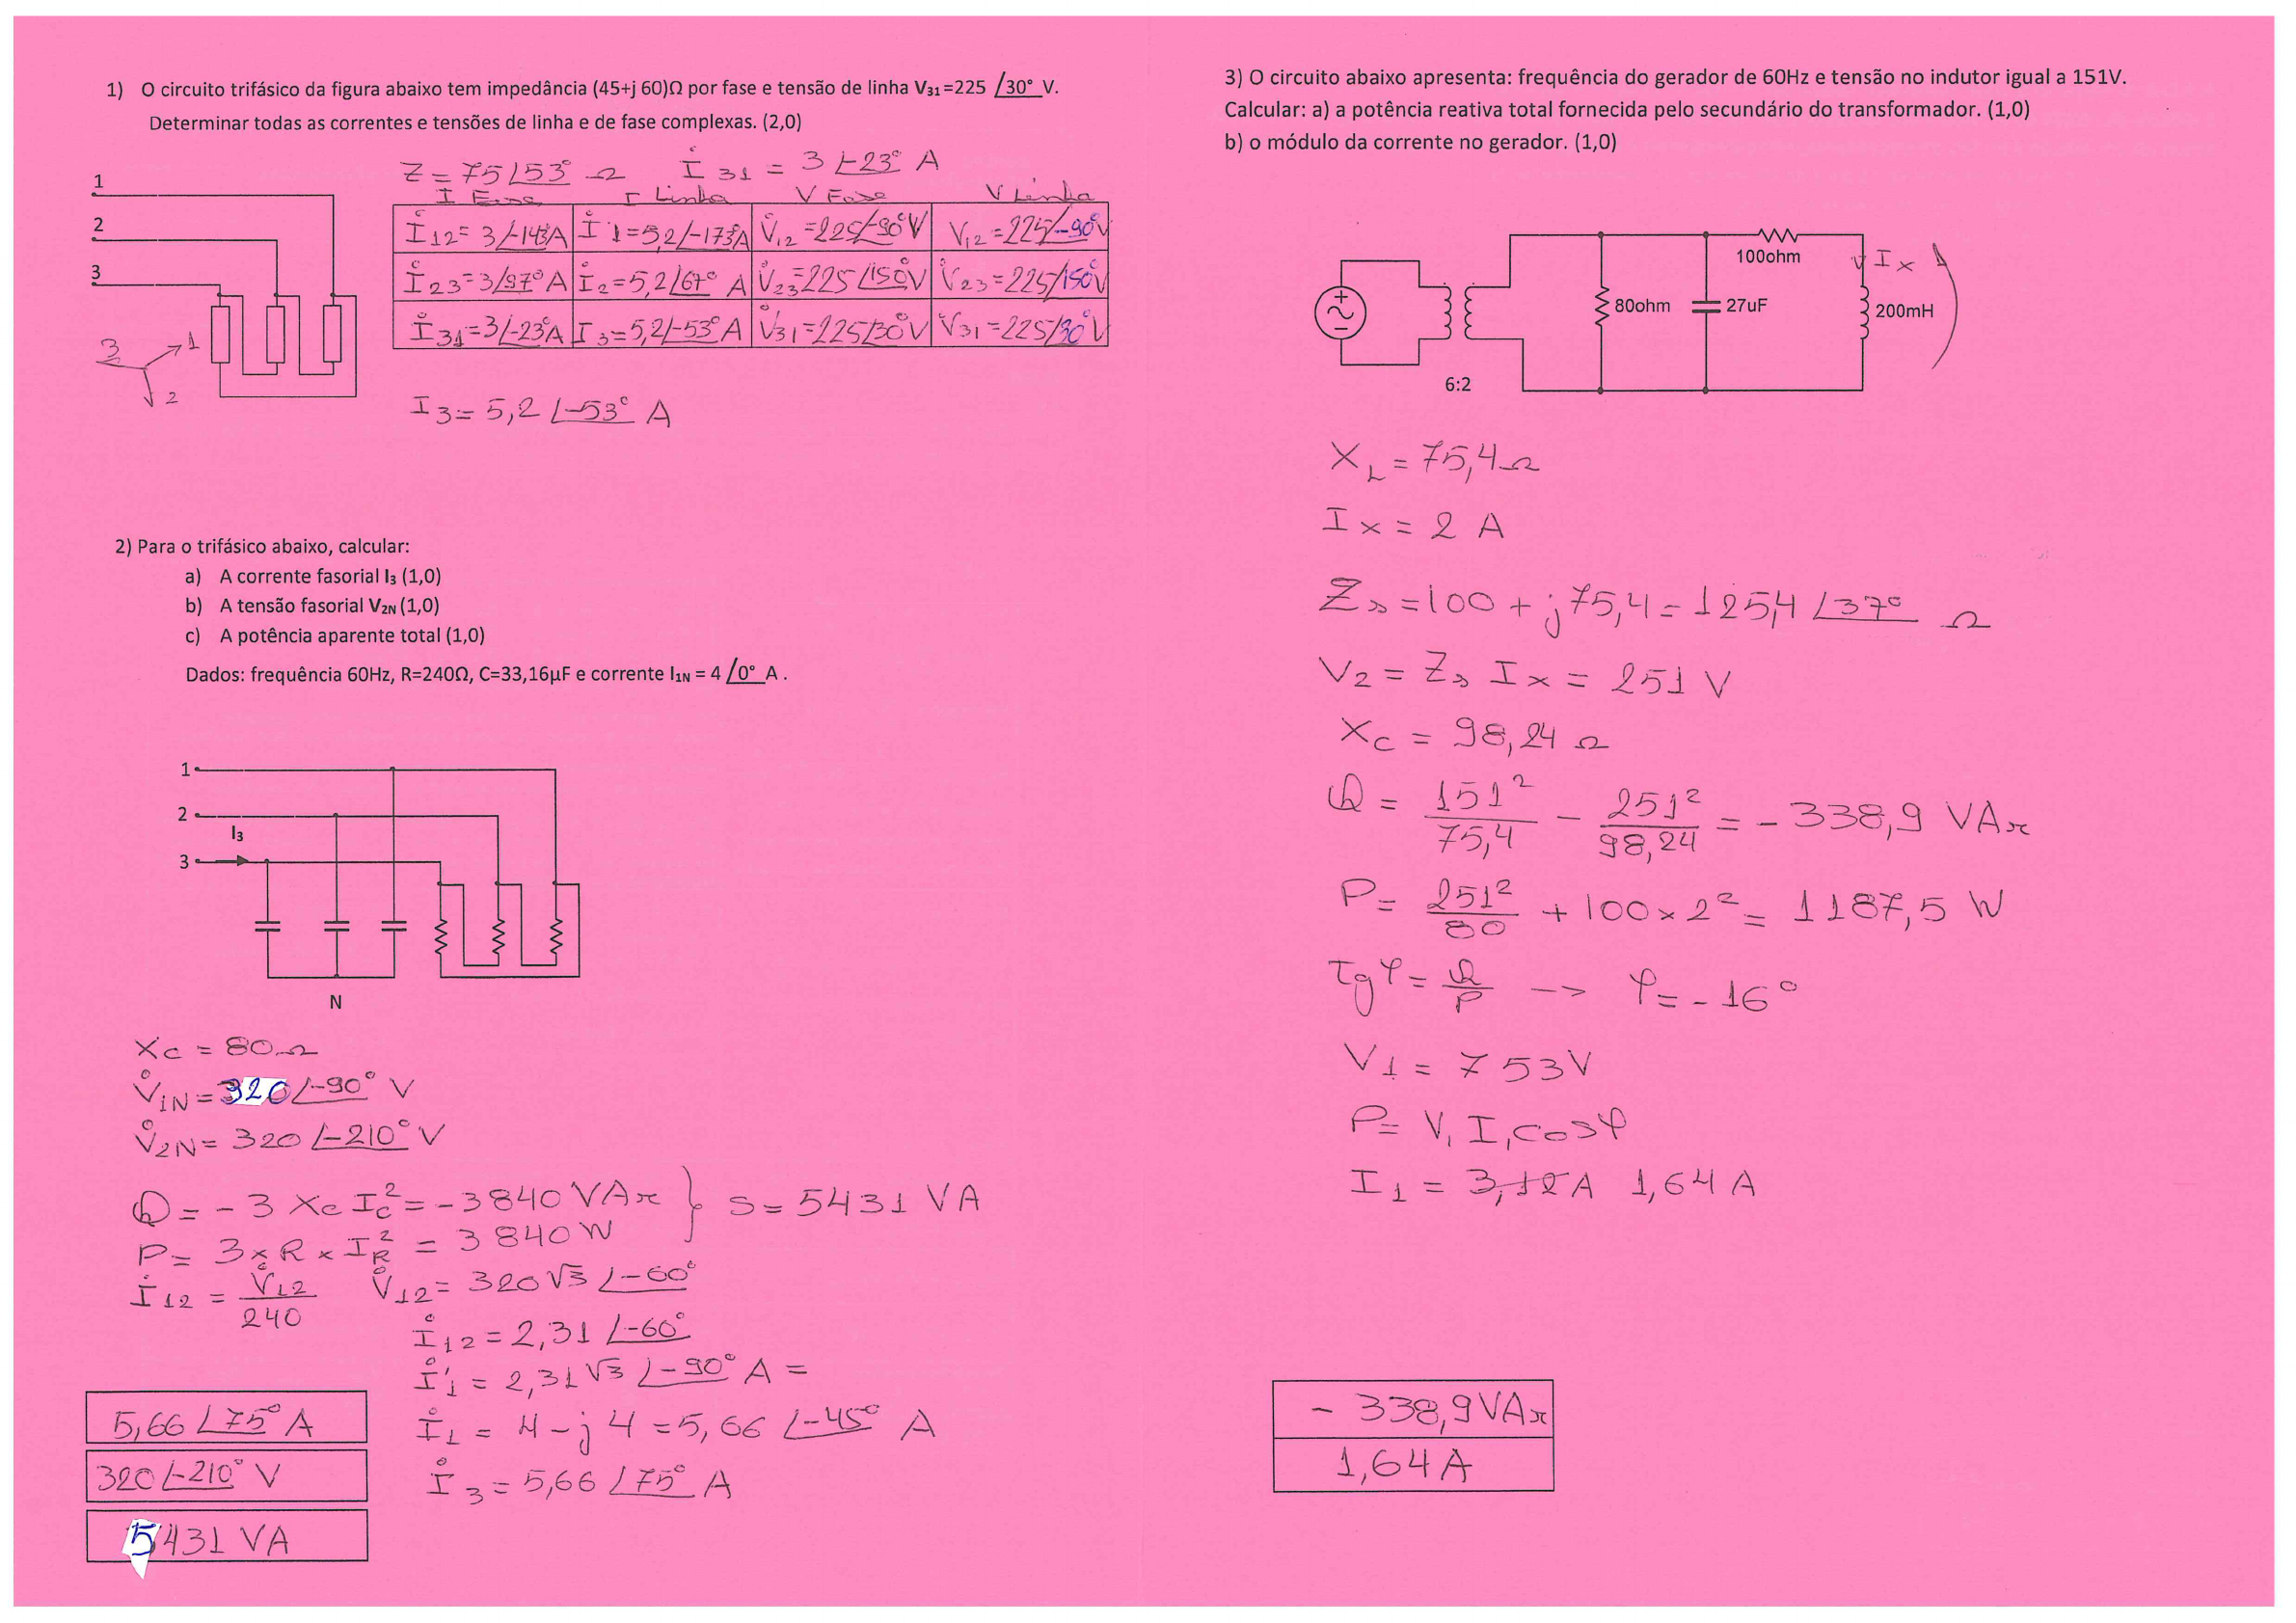 1) O circuito trifásico da figura abaixo tem impedância (45+j 60)Ω por fase e tensão de linha V31=225 /30° V.
Determinar todas as correntes e tensões de linha e de fase complexas. (2,0)
Z = 75 /53° Ω İ31 = 3 /-23° A
I Fase I Linha V Fase V Linha
İ12= 3/-143°A İ1=5,2/-173°A V̇12=225/-90°V V12=225/-90°V
İ23=3/97°A İ2=5,2/67° A V̇23=225/150°V V̇23=225/150°V
İ31=3/-23°A I3=5,2/-53°A V̇31=225/30°V V̇31=225/30°V
1
2
3
3 1
2
I3= 5,2 /-53° A
2) Para o trifásico abaixo, calcular:
a) A corrente fasorial I3 (1,0)
b) A tensão fasorial V2N (1,0)
c) A potência aparente total (1,0)
Dados: frequência 60Hz, R=240Ω, C=33,16µF e corrente I1N = 4 /0° A .
1
2
I3
3
N
XC = 80 Ω
V̇1N = 320 /-90° V
V̇2N = 320 /-210° V
Q = - 3 XC IC² = -3840 VAr } S = 5431 VA
P = 3 x R x IR² = 3840 W
İ12 = V̇12/240 V̇12 = 320 √3 /-60°
İ12 = 2,31 /-60°
İ'1 = 2,31 √3 /-90° A =
İ1 = 4 - j 4 = 5,66 /-45° A
İ3 = 5,66 /75° A
5,66 /75° A
320 /-210° V
5431 VA
3) O circuito abaixo apresenta: frequência do gerador de 60Hz e tensão no indutor igual a 151V.
Calcular: a) a potência reativa total fornecida pelo secundário do transformador. (1,0)
b) o módulo da corrente no gerador. (1,0)
100ohm
Ix
80ohm
27uF
200mH
6:2
XL = 75,4 Ω
Ix = 2 A
Zs = 100 + j 75,4 = 125,4 /37° Ω
V2 = Zs Ix = 251 V
XC = 98,24 Ω
Q = 151²/75,4 - 251²/98,24 = - 338,9 VAr
P = 251²/80 + 100 x 2² = 1187,5 W
Tg φ = Q/P -> φ = - 16°
V1 = 753V
P = V1 I1 cos φ
I1 = 3,12A 1,64 A
- 338,9 VAr
1,64 A